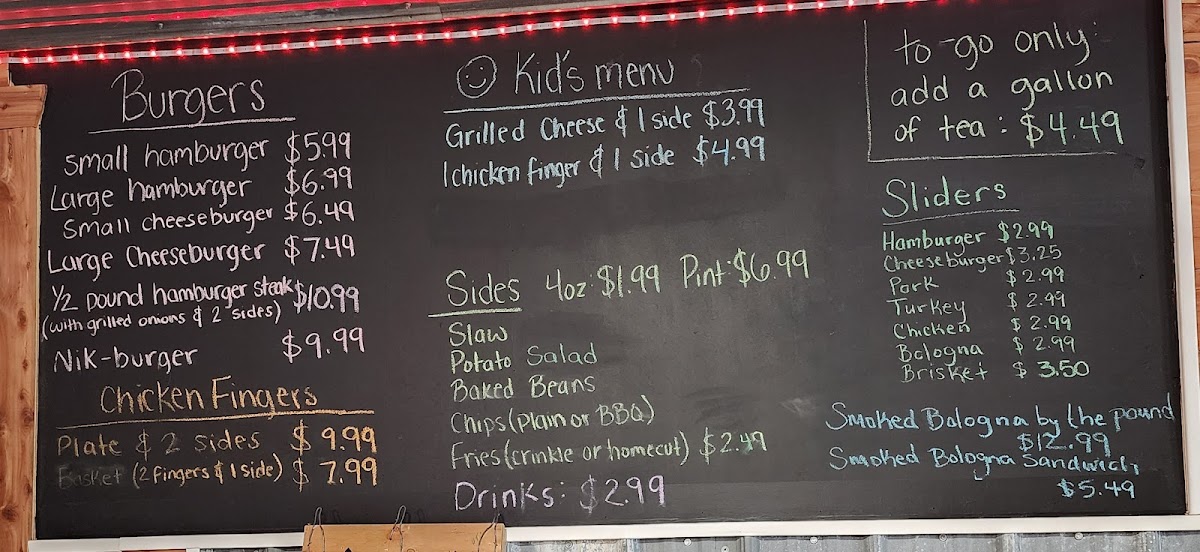 Burgers
small hamburger $5.99
Large hamburger $6.99
Small cheeseburger $6.49
Large Cheeseburger $7.49
1/2 pound hamburger steak $10.99
(with grilled onions & 2 sides)
Nik-burger $9.99
Chicken Fingers
Plate & 2 sides $9.99
Basket (2 fingers & 1 side) $7.99
Kid's menu
Grilled Cheese & 1 side $3.99
1 chicken finger & 1 side $4.99
Sides 4oz: $1.99 Pint: $6.99
Slaw
Potato Salad
Baked Beans
Chips (plain or BBQ)
Fries (crinkle or homecut) $2.49
Drinks: $2.99
to-go only:
add a gallon
of tea: $4.49
Sliders
Hamburger $2.99
Cheeseburger $3.25
Pork $2.99
Turkey $2.99
Chicken $2.99
Bologna $2.99
Brisket $3.50
Smoked Bologna by the pound
$12.99
Smoked Bologna Sandwich
$5.49